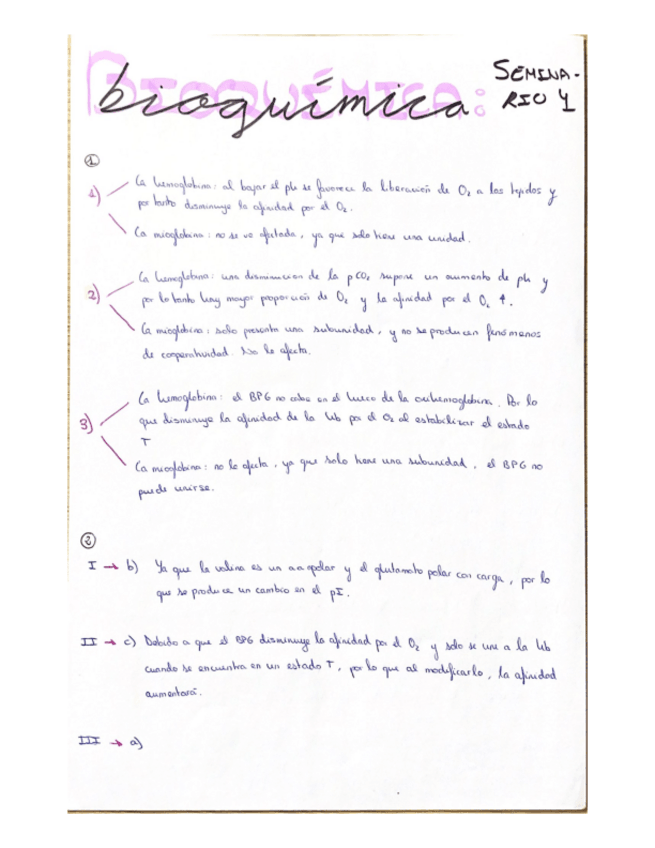 BIOQUÍMICA:
bioquímica
SEMINA-
RIO 1
①
1)
La hemoglobina: al bajar el ph se favorece la liberación de O₂ a los tejidos y
por tanto disminuye la afinidad por el O₂.
La mioglobina: no se ve afectada, ya que solo tiene una unidad.
2)
La hemoglobina: una disminucion de la pCO₂ supone un aumento de ph y
por lo tanto hay mayor proporción de O₂ y la afinidad por el O₂ ↑.
La mioglobina: solo presenta una subunidad, y no se producen fenómenos
de cooperatividad. No le afecta.
3)
La hemoglobina: el BPG no cabe en el hueco de la oxihemoglobina. Por lo
que disminuye la afinidad de la Hb por el O₂ al estabilizar el estado
T
La mioglobina: no le afecta, ya que solo tiene una subunidad, el BPG no
puede unirse.
②
I → b) Ya que la valina es un aa apolar y el glutamato polar con carga, por lo
que se produce un cambio en el pI.
II → c) Debido a que el BPG disminuye la afinidad por el O₂ y solo se une a la Hb
cuando se encuentra en un estado T, por lo que al modificarlo, la afinidad
aumentará.
III → a)